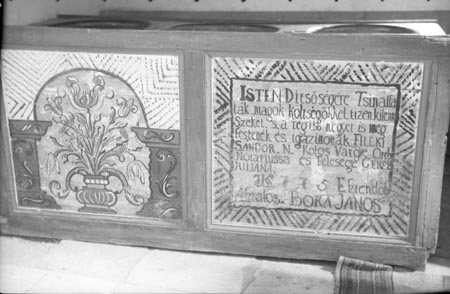 ISTEN Ditsőségére Tsinálta
ták magok költségökkel tizenkilentz
Széket, s a régibb négyet is meg
festették és igazitották FILEKI
SÁNDOR N. Kolos Váror
Nótáriussa és Felesége
JULIÁNA
177 5 Esztendőb
Asztalos BOKA JÁNOS